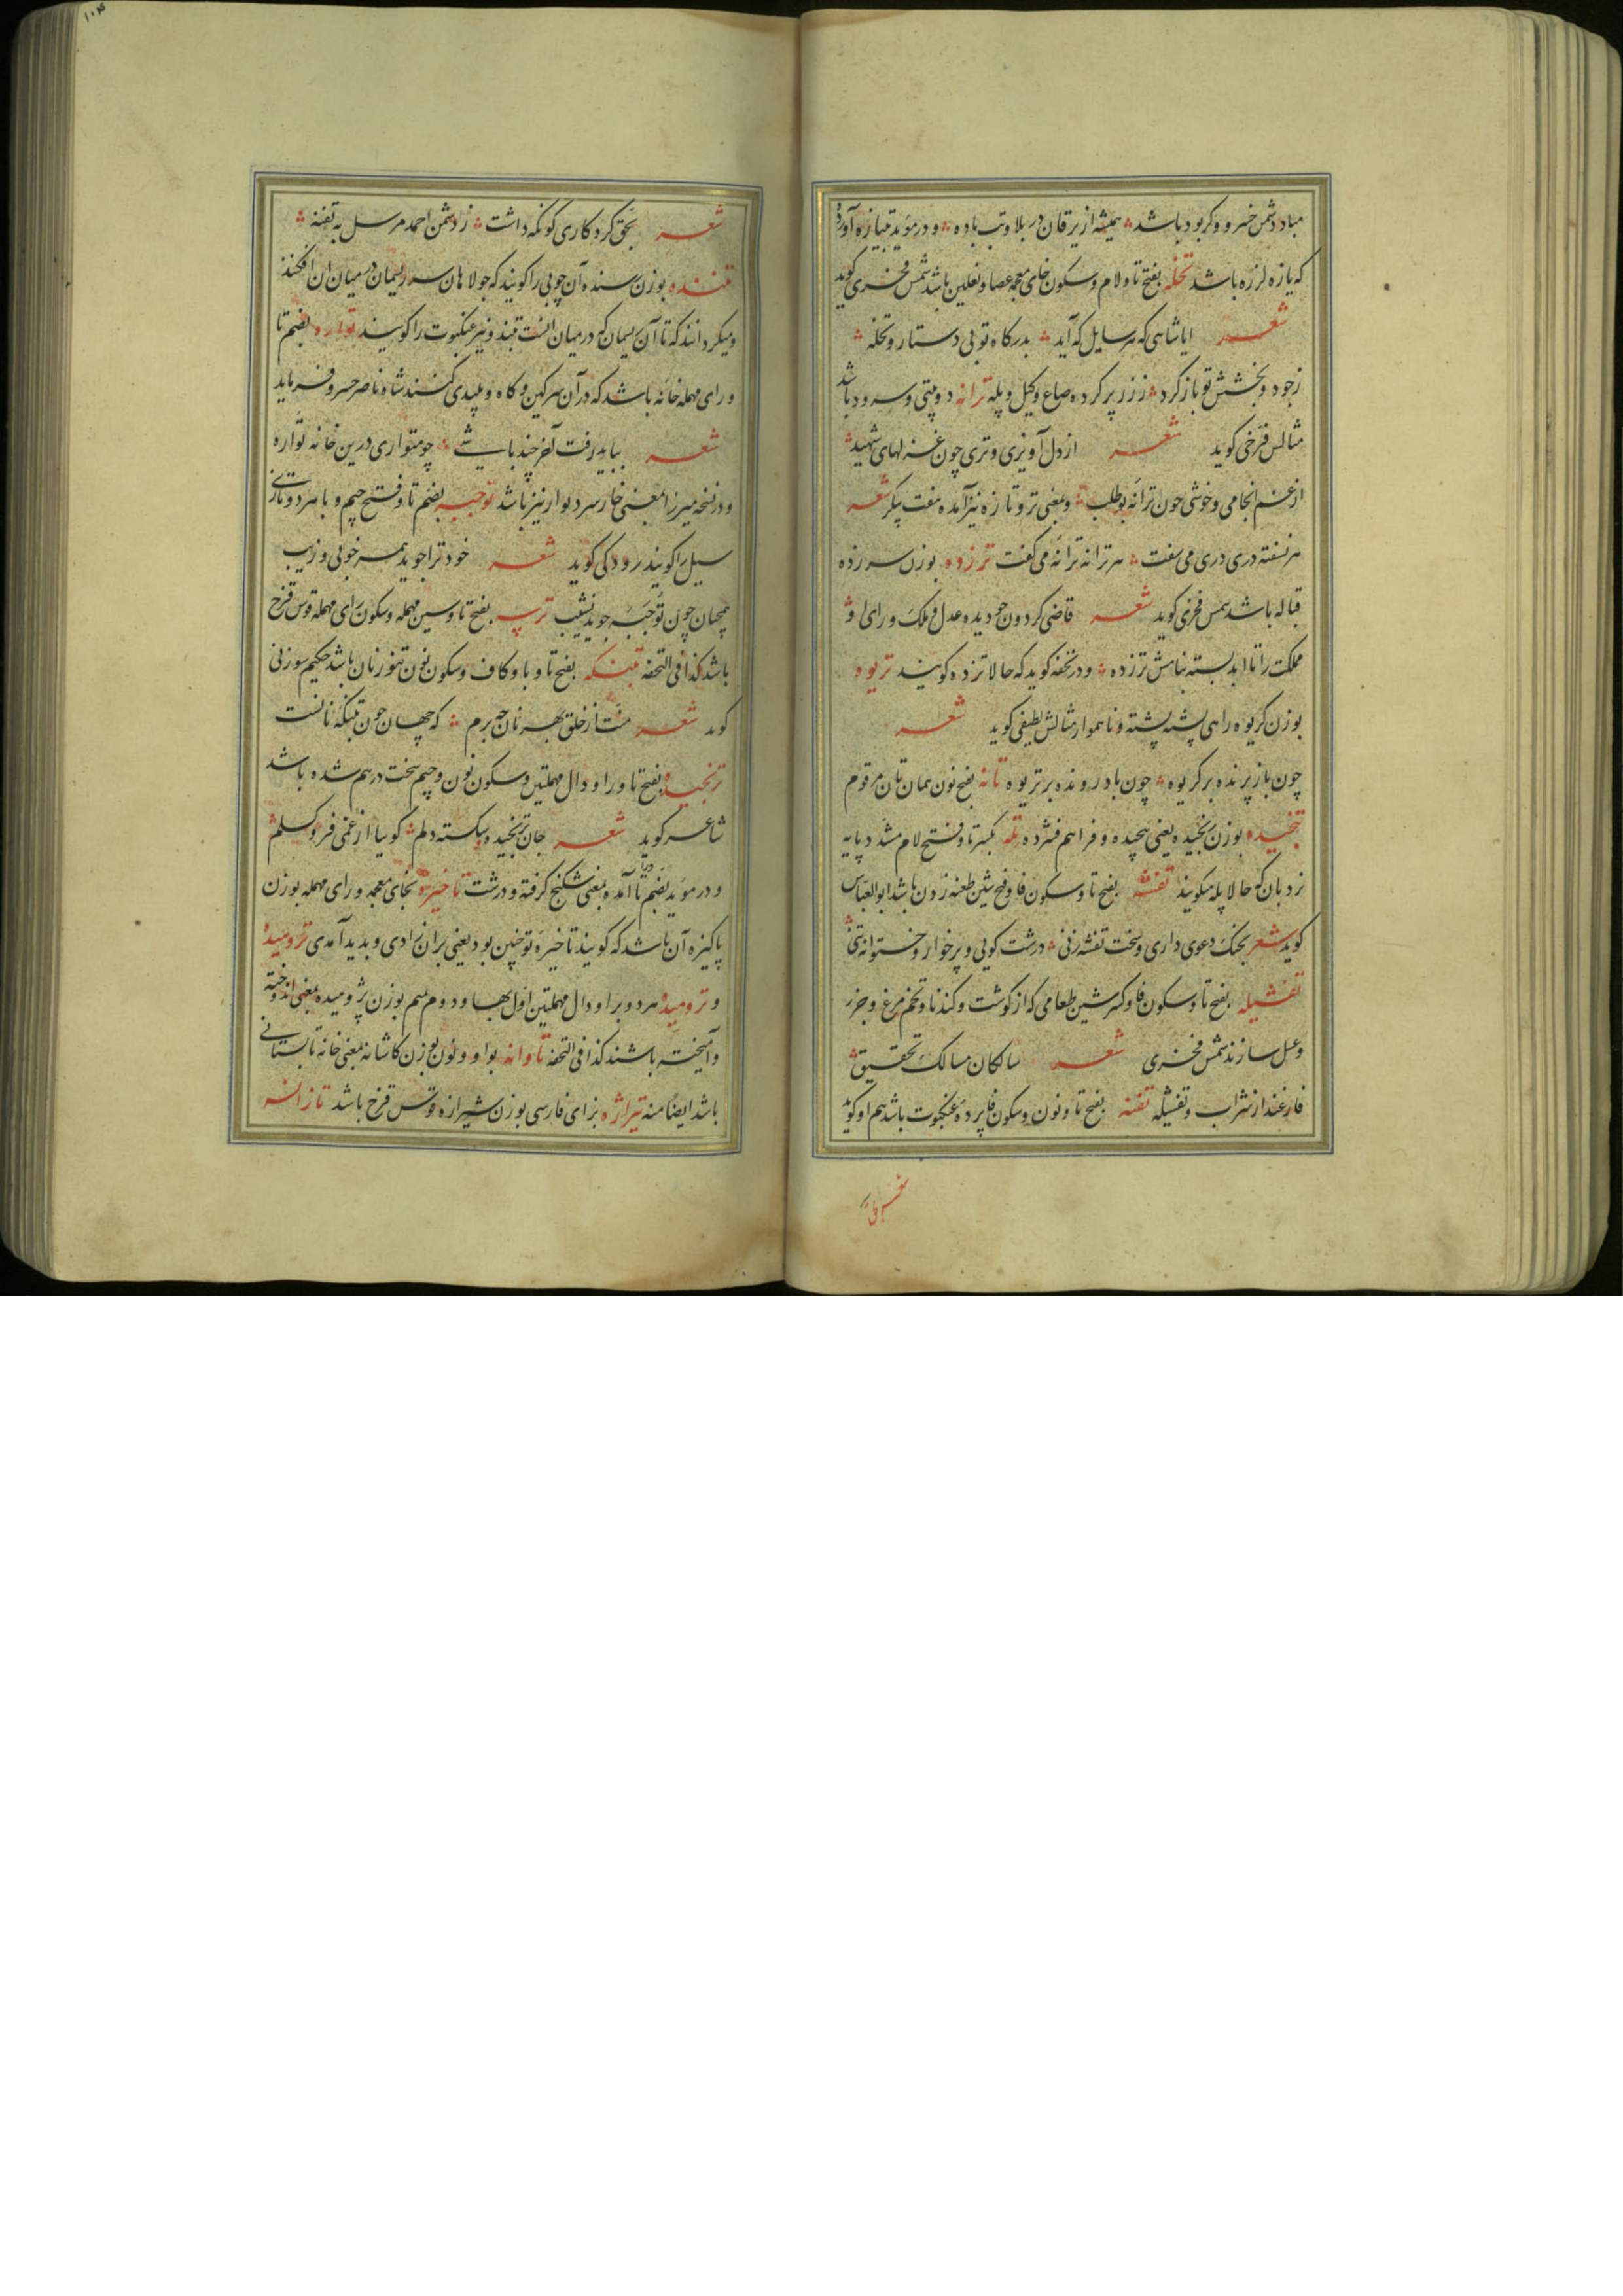 مباد دشمن خسرو وکر بود باشد همیشه از یرقان در بلا وتب باده و در مؤید تبیازه آورده
که یازه لرزه باشد تخله بفتح تا ولام وسکون خای معجمه عصا ونعلین باشد شمس فخری کوید
شعر ایا شاهی که هر سایل که آید بدرکاه تو بی دستار وتخله
زجود وبخشش تو باز کردد ز زر پر کرده صاع وکیل وپله ترانه دوبیتی وسرود باشد
مثالس فرّخی کوید شعر از دل آویزی وتری چون غزلهای شهید
از غم انجامی وخوشی چون ترانه بوطلب وبمعنی تر وتازه نیز آمده هفت پیکر شعر
هر نسفته دری دری می سفت هر ترانه ترانه می کفت ترزده بوزن سرزده
قباله باشد شمس فخری کوید شعر قاضی کردون چو دیده عدل وملک ورای او
مملکت را تا ابد بسته بنامش ترزده ودر تحفه کوید که حالا تزده کویند تریوه
بوزن کریوه راهی پشته پشته وناهموار مثالش لطیفی کوید شعر
چون باز پرنده بر کریوه چون باد رونده بر تریوه تانه بفتح نون همان تان مرقوم
تنجیده بوزن رنجیده یعنی پیچیده وفراهم فشرده تله بکسر تا وفتح لام مشدد پایه
نردبان که حالا پله میکویند تفشه بفتح تا وسکون فا وفتح شین طعنه زدن باشد ابوالعباس
کوید شعر بجنک دعوی داری وسخت تفشه زنی درشت کویی وپرخوار وخستوانه تنی
تفشیله بفتح تا وسکون فا وکسر شین طعامی که از کوشت وکندنا وتخم مرغ وجزر
وعسل سازند شمس فخری شعر سالکان مسالک تحقیق
فارغند از شراب وتفشیله تفنه بفتح تا ونون وسکون فا پرده عنکبوت باشد هم او کوید
شعر بحق
شعر بحق کردکاری کو نکه داشت ز دشمن احمد مرسل به تفنه
تننده بوزن رسنده آن چوبی را کویند که جولاهان سر ریسمان در میان آن افکنند
ومیکردانند که تا آن ریسمان که در میان انست تنند ونیز عنکبوت را کویند تواره بضم تا
ورای مهمله خانه باشد که در آن سرکین وکاه وپلیدی کنند شاه ناصر خسرو فرماید
شعر بباید رفت آخر چند باشی چو متواری درین خانه تواره
ودر نسخه میرزا بمعنی خار سر دیوار نیز باشد توجبه بضم تا وفتح جیم وبا هر دو تازی
سیل را کویند رودکی کوید شعر خود ترا جوید همه خوبی وزیب
همچنان چون توجبه جوید نشیب ترسه بفتح تا وسین مهمله وسکون رای مهمله قوس قزح
باشد کذا فی التحفه تبنکه بفتح تا وبا وکاف وسکون نون تنور نان باشد حکیم سوزنی
کوید شعر منت از خلق بهر نان چه برم که جهان چون تبنکه نانست
ترنجیده بفتح تا ورا ودال مهملتین وسکون نون وجیم سخت درهم شده باشد
شاعر کوید شعر جان ترنجیده وشکسته دلم کوییا از غمی فرو کسلم
ودر مؤید بضم تا ورا آمده بمعنی شکنج کرفته ودرشت تاخیره بخای معجمه ورای مهمله بوزن
پاکیزه آن باشد که کویند تاخیره تو چنین بود یعنی بر آن زادی وبدید آمدی ترومیده
وترومیده هر دو برا ودال مهملتین اول بها ودوم میم بوزن پژومیده بمعنی اندوخته
وآمیخته باشند کذا فی التحفه تاوانه بواو ونون بوزن کاشانه بمعنی خانه تابستانی
باشد ایضا منه تیراژه بزای فارسی بوزن شیرازه قوس قزح باشد تازانه